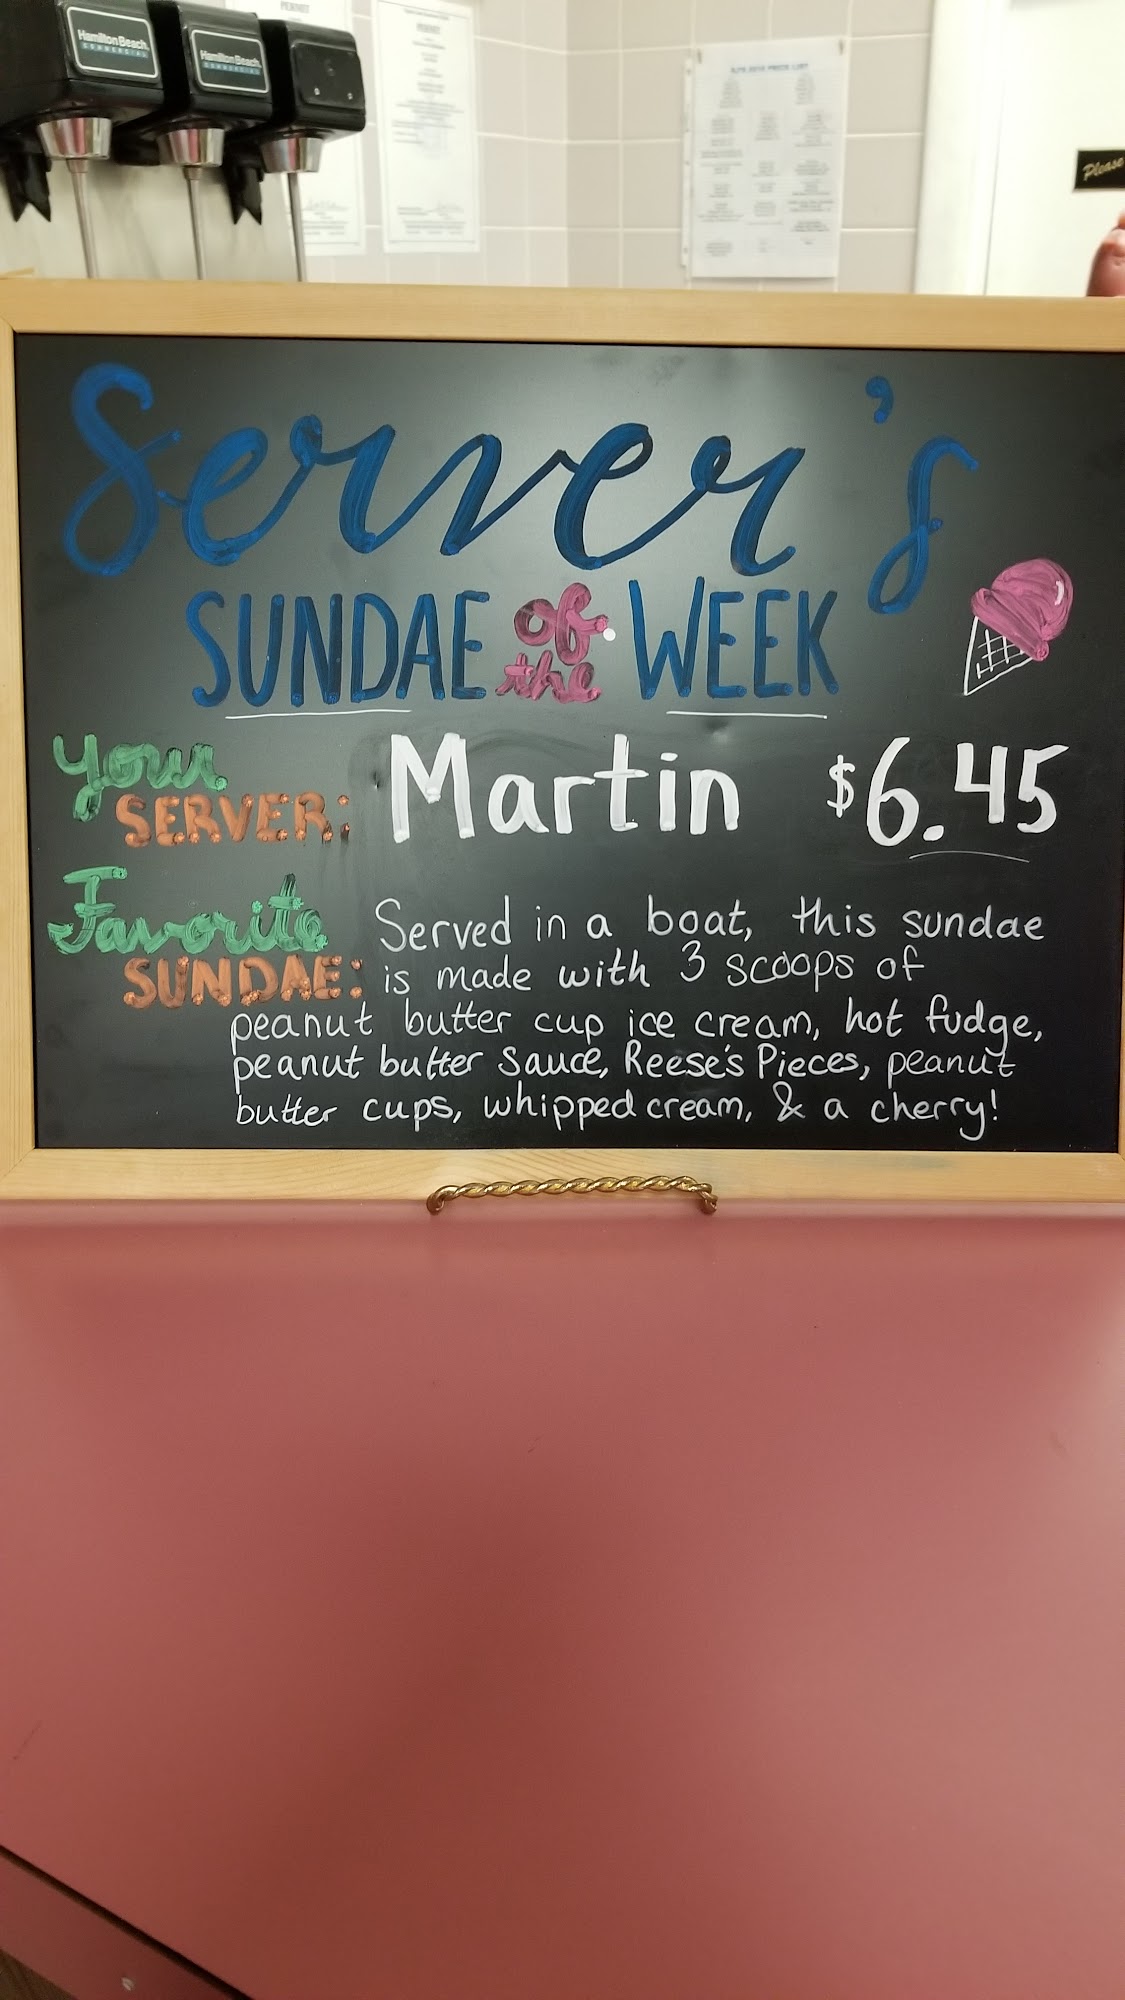 Hamilton Beach
COMMERCIAL
Hamilton Beach
COMMERCIAL
PERMIT
PERMIT
PRICE LIST
Please
Server's
SUNDAE of the WEEK
your
SERVER: Martin $6.45
Favorite
SUNDAE: Served in a boat, this sundae
is made with 3 scoops of
peanut butter cup ice cream, hot fudge,
peanut butter sauce, Reese's Pieces, peanut
butter cups, whipped cream, & a cherry!